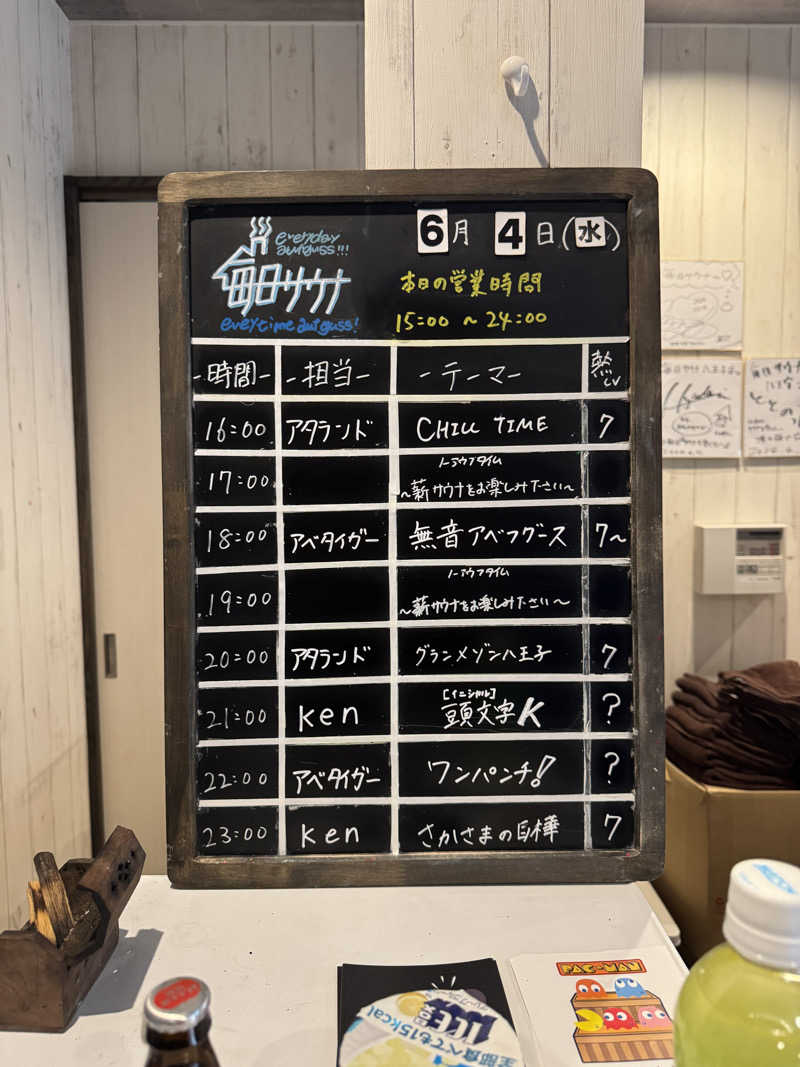 everyday
autguss!!!
毎日サウナ
everytime autguss!
6月 4日(水)
本日の営業時間
15:00 ~ 24:00
-時間- -担当- -テーマ- 熱LV
16:00 アタランド CHILL TIME 7
17:00 ノーアウフタイム
~薪サウナをお楽しみ下さい~
18:00 アベタイガー 無音アベフグース 7~
19:00 ノーアウフタイム
~薪サウナをお楽しみ下さい~
20:00 アタランド グランメゾン八王子 7
21:00 ken [イニシャル]
頭文字K ?
22:00 アベタイガー ワンパンチ! ?
23:00 ken さかさまの白樺 7
PAC-MAN
全部食べても15kcal